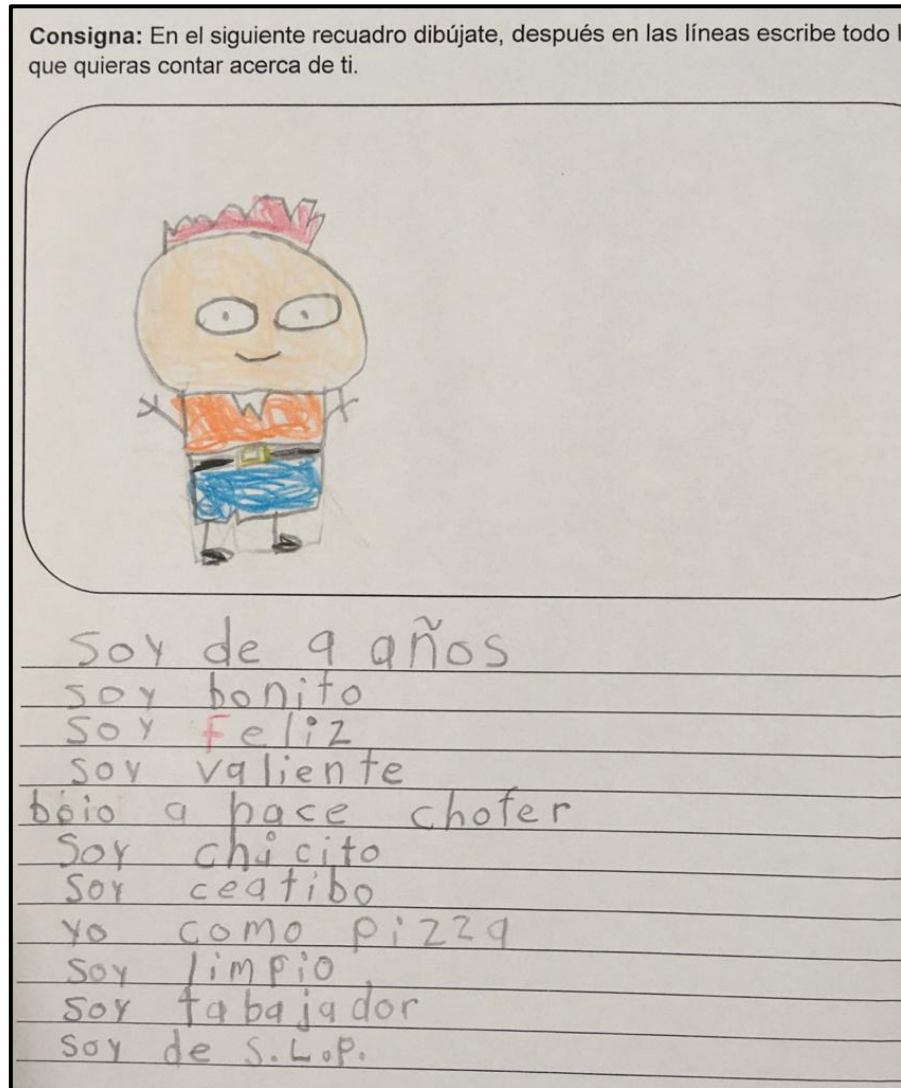 Consigna: En el siguiente recuadro dibújate, después en las líneas escribe todo l
que quieras contar acerca de ti.
soy de 9 años
soy bonito
soy Feliz
soy valiente
boio a hace chofer
Soy chicito
Soy ceatibo
yo como pizza
soy limpio
soy tabajador
soy de S.L.P.